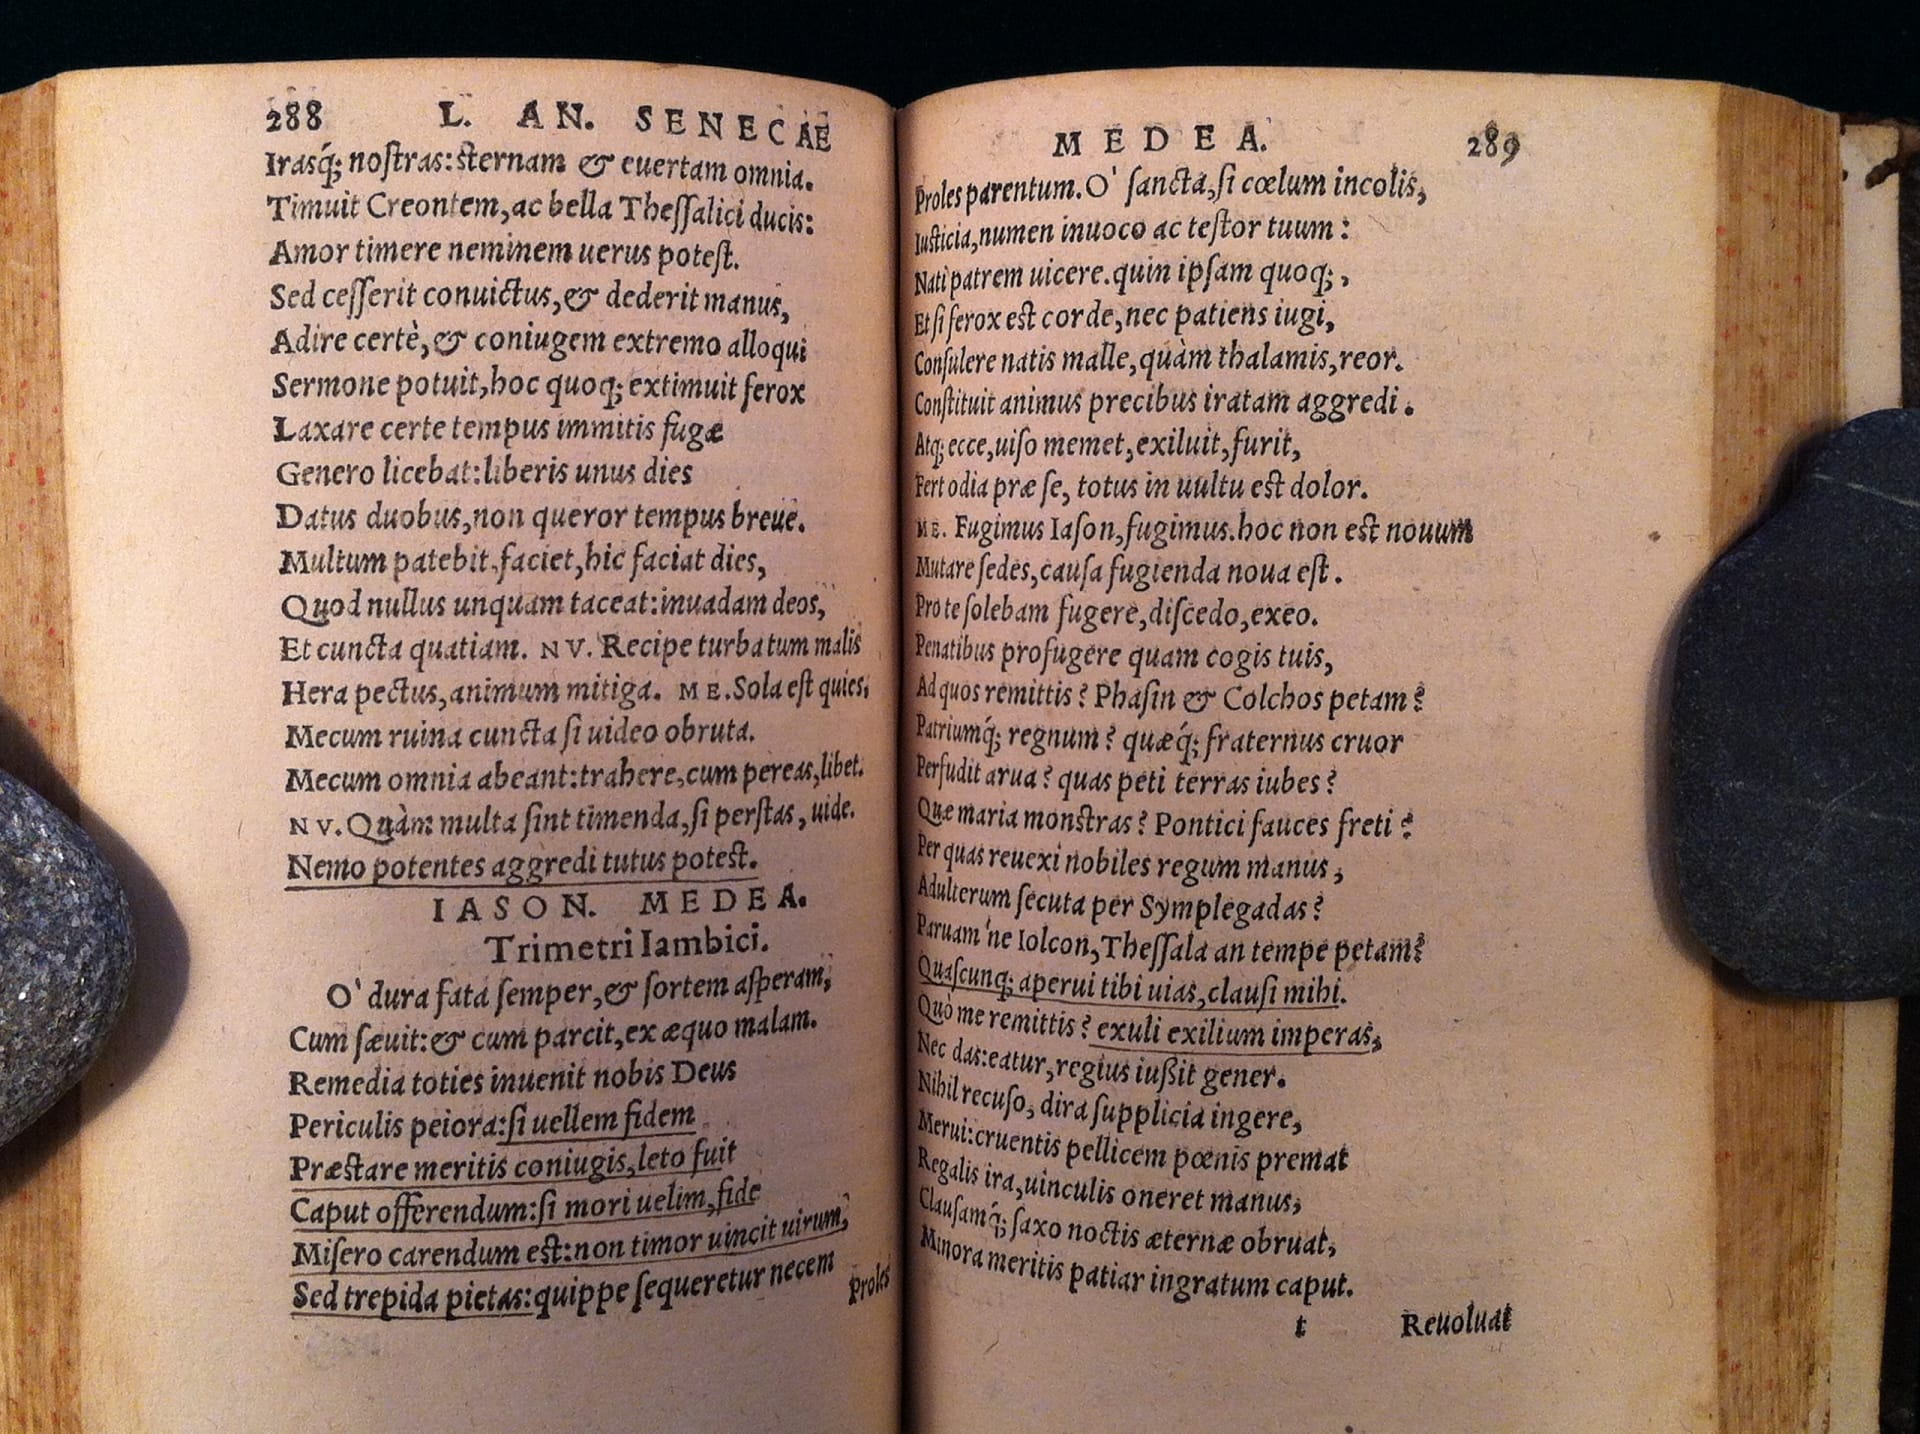 288 L. AN. SENECAE
Irasq́; nostras: sternam & euertam omnia.
Timuit Creontem, ac bella Thessalici ducis:
Amor timere neminem uerus potest.
Sed cesserit conuictus, & dederit manus,
Adire certè, & coniugem extremo alloqui
Sermone potuit, hoc quoq; extimuit ferox
Laxare certe tempus immitis fugæ
Genero licebat: liberis unus dies
Datus duobus, non queror tempus breue.
Multum patebit, faciet, hic faciat dies,
Quod nullus unquam taceat: inuadam deos,
Et cuncta quatiam. NV. Recipe turbatum malis
Hera pectus, animum mitiga. ME. Sola est quies,
Mecum ruina cuncta si uideo obruta.
Mecum omnia abeant: trahere, cum pereas, libet.
NV. Quàm multa sint timenda, si perstas, uide.
Nemo potentes aggredi tutus potest.
IASON. MEDEA.
Trimetri Iambici.
O' dura fata semper, & sortem asperam,
Cum sæuit: & cum parcit, ex æquo malam.
Remedia toties inuenit nobis Deus
Periculis peiora: si uellem fidem
Præstare meritis coniugis, leto fuit
Caput offerendum: si mori uelim, fide
Misero carendum est: non timor uincit uirum,
Sed trepida pietas: quippe sequeretur necem
Proles
MEDEA. 289
Proles parentum. O' sancta, si cœlum incolis,
Iusticia, numen inuoco ac testor tuum:
Nati patrem uicere. quin ipsam quoq;,
Et si ferox est corde, nec patiens iugi,
Consulere natis malle, quàm thalamis, reor.
Constituit animus precibus iratam aggredi.
Atq; ecce, uiso memet, exiluit, furit,
Fert odia præ se, totus in uultu est dolor.
ME. Fugimus Iason, fugimus. hoc non est nouum
Mutare sedes, causa fugienda noua est.
Pro te solebam fugere, discedo, exeo.
Penatibus profugere quam cogis tuis,
Ad quos remittis? Phasin & Colchos petam?
Patriumq́; regnum? quæq́; fraternus cruor
Perfudit arua? quas peti terras iubes?
Quæ maria monstras? Pontici fauces freti?
Per quas reuexi nobiles regum manus,
Adulterum secuta per Symplegadas?
Paruam'ne Iolcon, Thessala an tempe petam?
Quascunq; aperui tibi uias, clausi mihi.
Quò me remittis? exuli exilium imperas,
Nec das: eatur, regius iußit gener.
Nihil recuso, dira supplicia ingere,
Merui: cruentis pellicem pœnis premat
Regalis ira, uinculis oneret manus,
Clausamq́; saxo noctis æternæ obruat,
Minora meritis patiar ingratum caput.
t Reuoluat